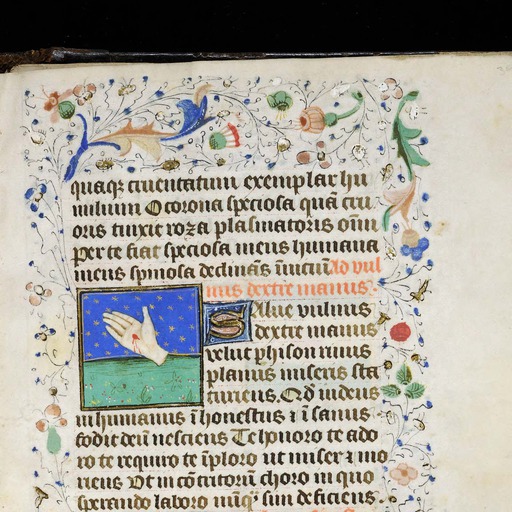 quaqz cruentatum exemplar hu
milium O corona speciosa quā cru
oris tinxit roza plasmatoris om̄i
per te fiat speciosa mens humana
mens spinosa declinās ī uiciū Ad vul
nus dextre manus.
Salue vulnus
dextre manus
velut phison riuus
planus miseris sta
turiens. Qd videns
inhumanus īhonestus ⁊ īsanus
fodit deū nesciens Te honoro te ado
ro te requiro te īploro ut miser ⁊ mo
riens Ut in cōtritorū choro in quo
sperando laboro nūq sim deficiens.